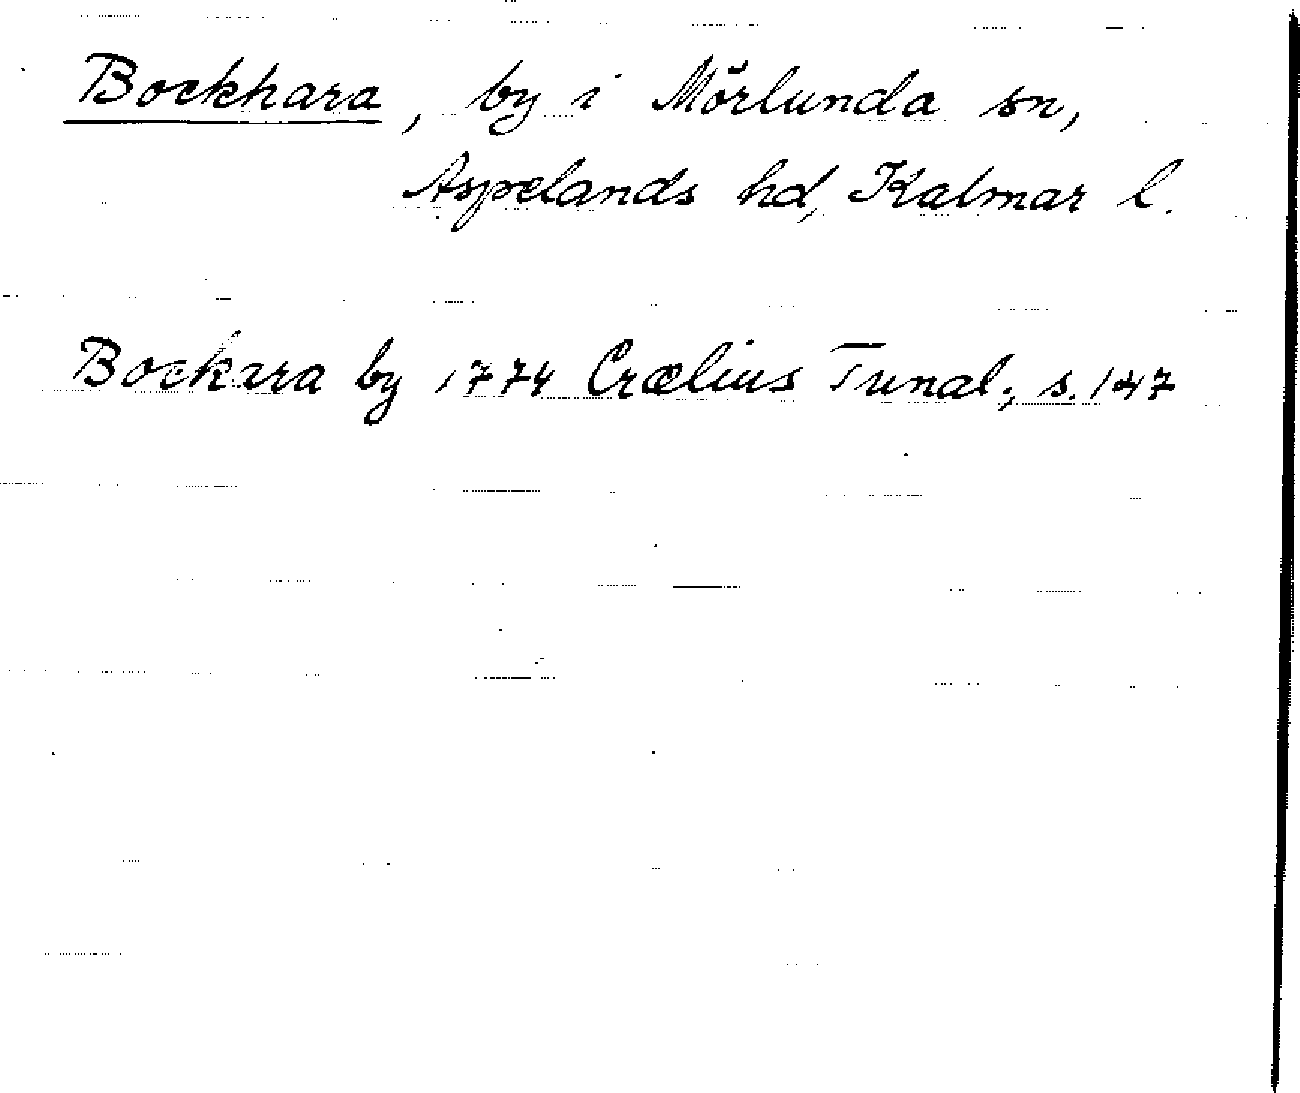 Bockhara, by i Mörlunda sn,
Aspelands hd, Kalmar l.
Bockara by 1774 Crælius Tunal., s. 147